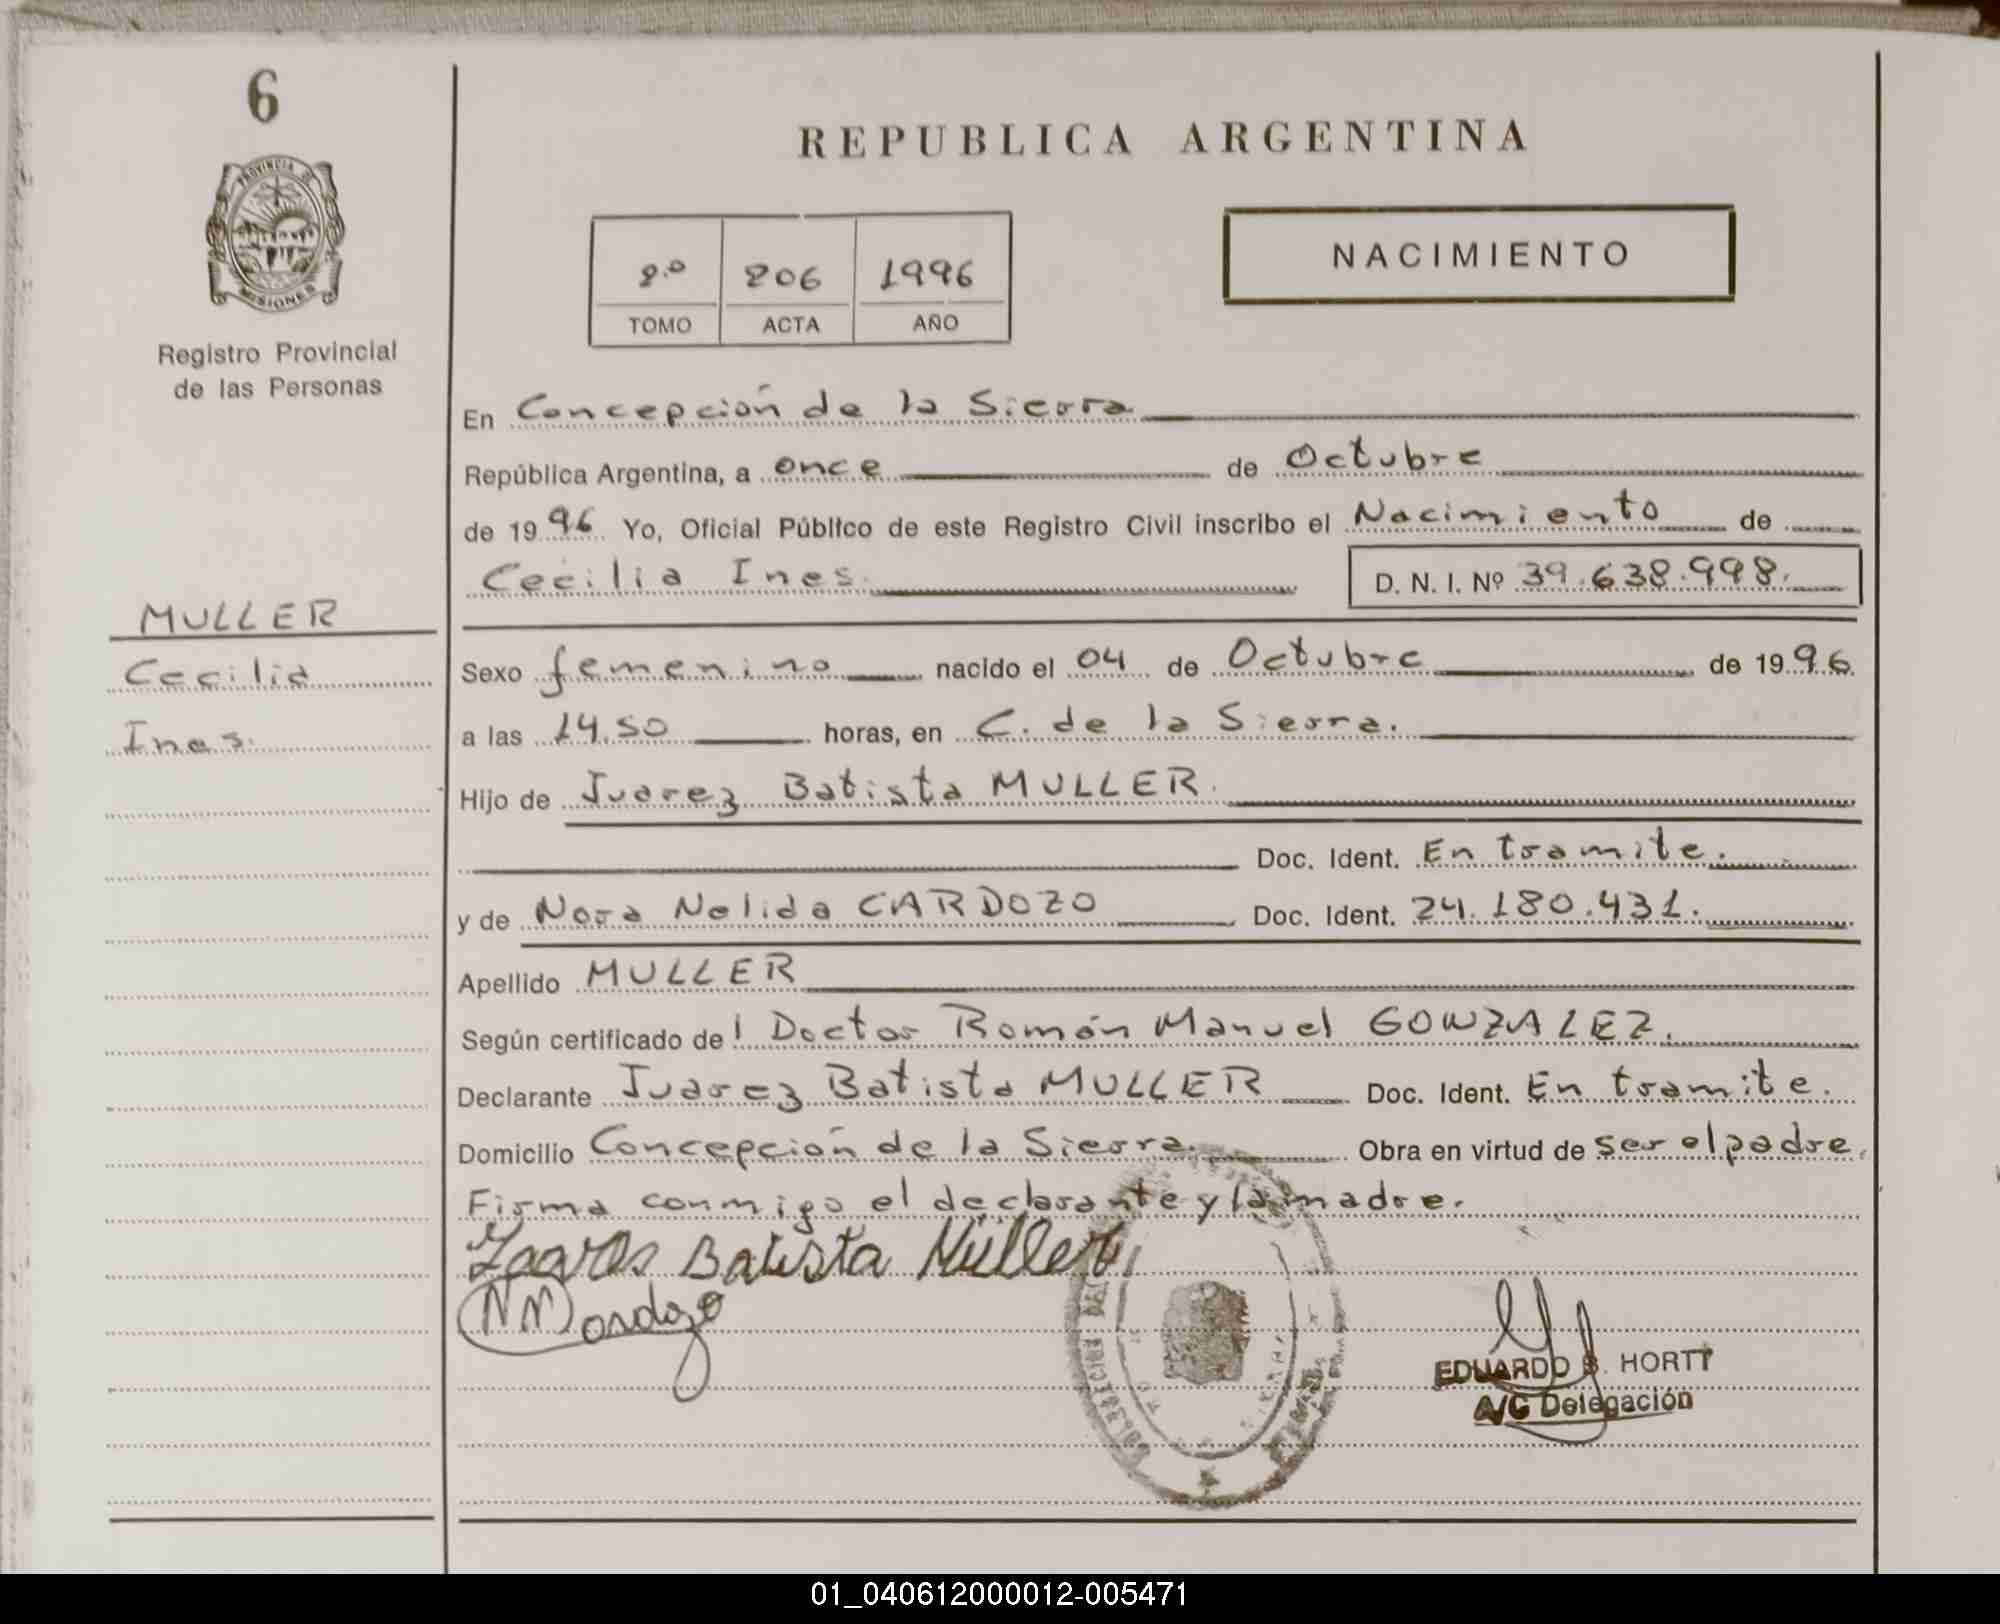 6
PROVINCIA DE
MISIONES
Registro Provincial
de las Personas
REPUBLICA ARGENTINA
2.º 206 1996
TOMO ACTA AÑO
NACIMIENTO
En Concepción de la Sierra
República Argentina, a once de Octubre
de 1996 Yo, Oficial Público de este Registro Civil inscribo el Nacimiento de
Cecilia Ines. D. N. I. Nº 39.638.998.
MULLER
Cecilia
Ines.
Sexo femenino nacido el 04 de Octubre de 1996.
a las 14.50 horas, en C. de la Sierra.
Hijo de Juarez Batista MULLER.
Doc. Ident. En tramite.
y de Nora Nelida CARDOZO Doc. Ident. 24.180.431.
Apellido MULLER
Según certificado del Doctor Román Manuel GONZALEZ.
Declarante Juarez Batista MULLER Doc. Ident. En tramite.
Domicilio Concepción de la Sierra. Obra en virtud de ser el padre.
Firma conmigo el declarante y la madre.
Batista Müller
EDUARDO HORTT
A/C Delegación
01_040612000012-005471